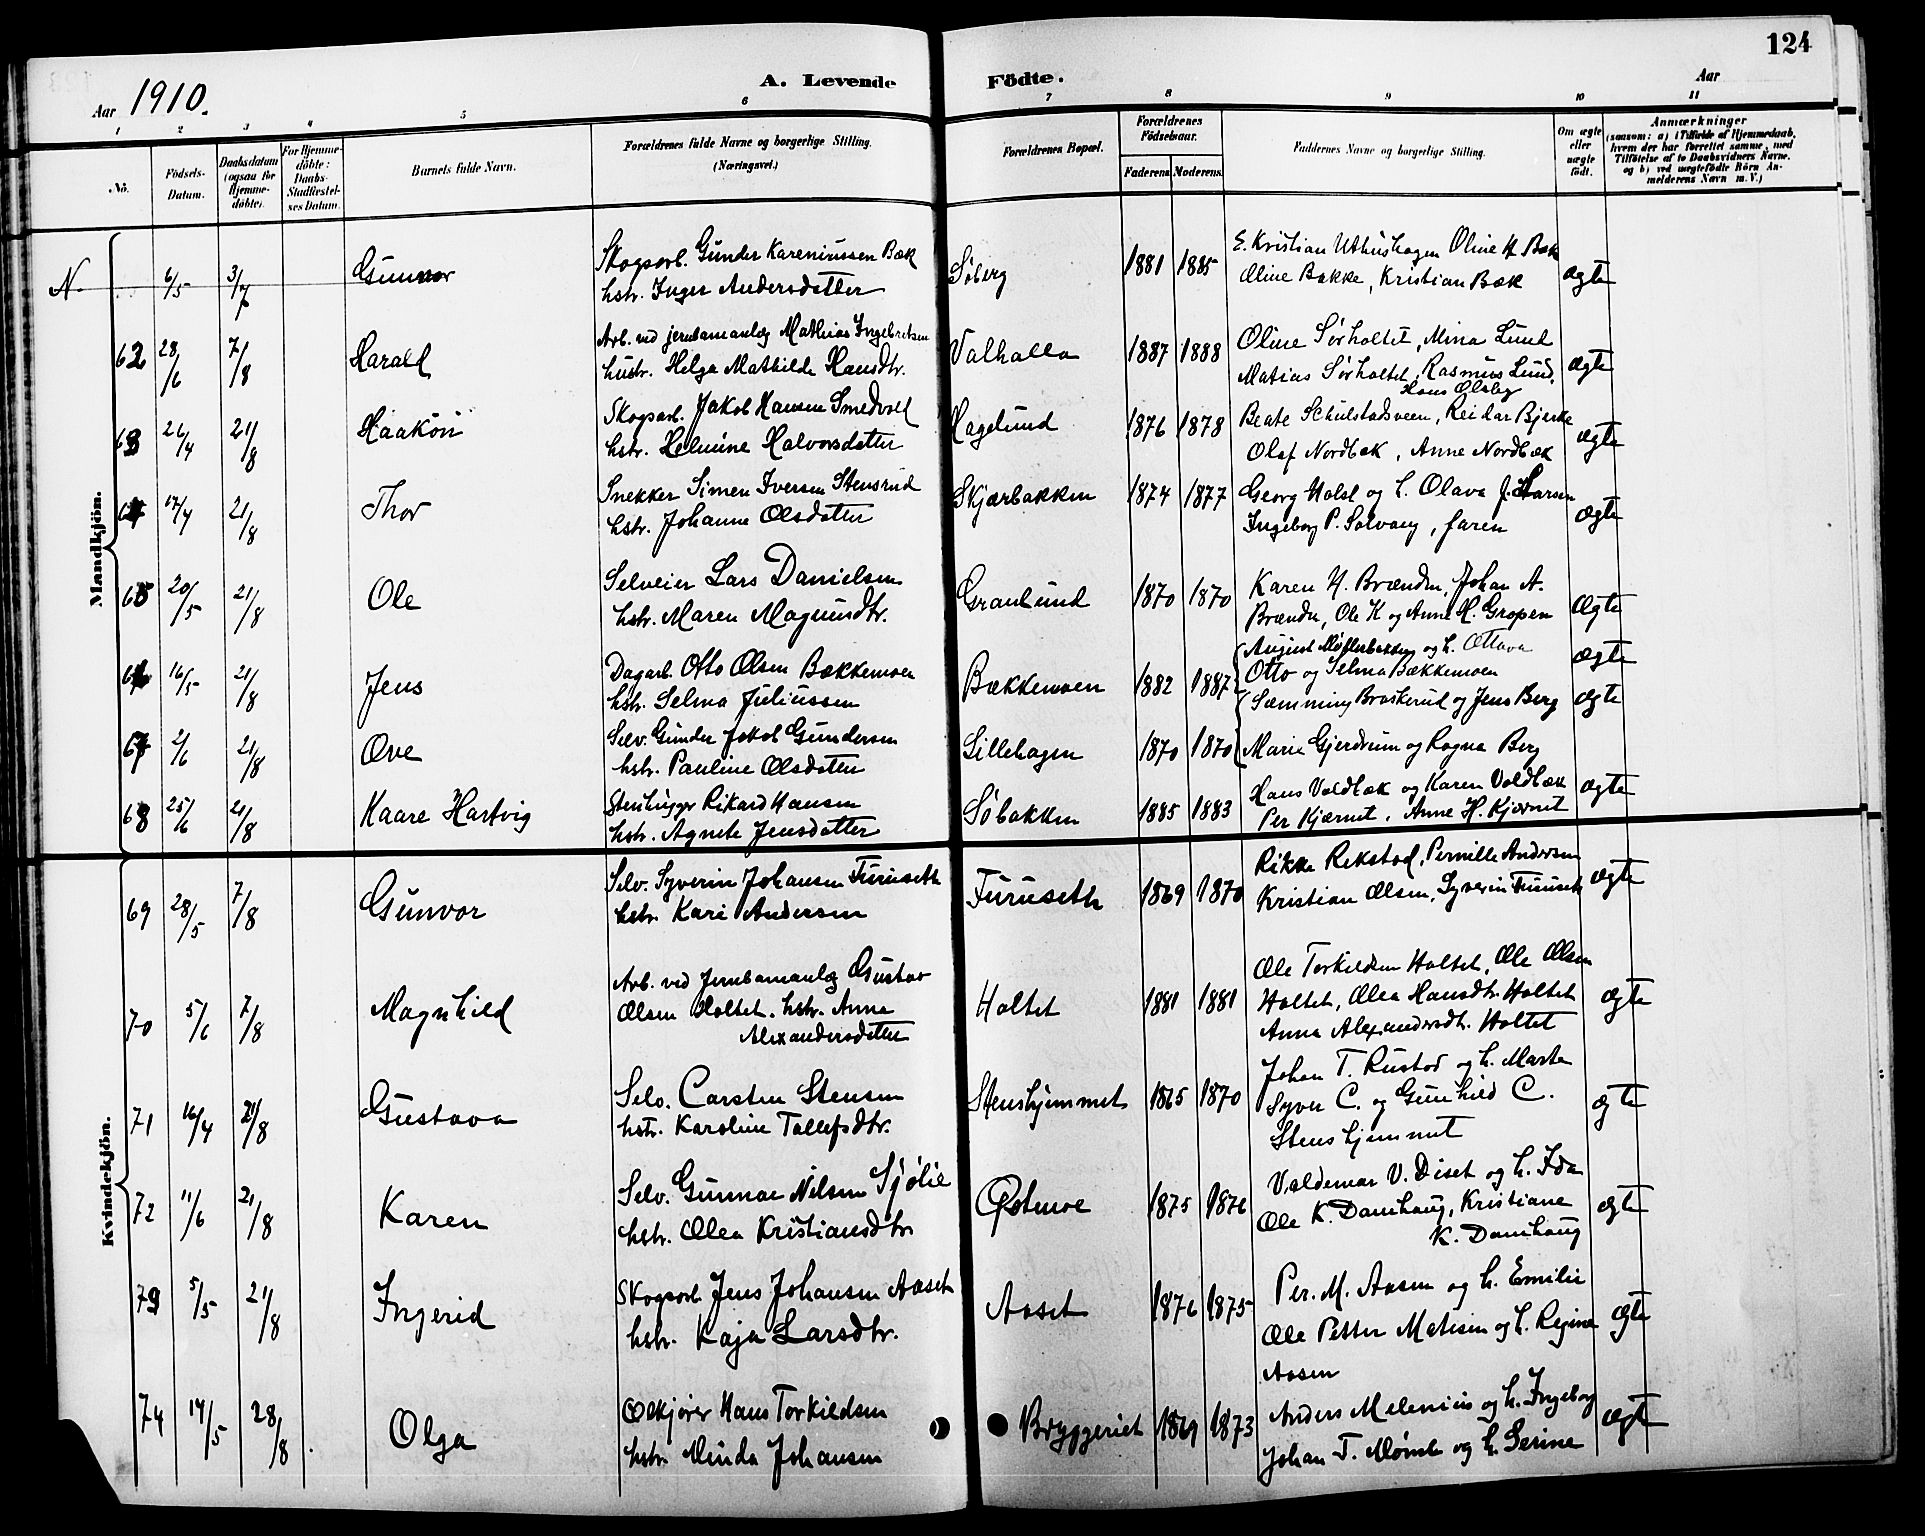 124
Aar 1910. A. Levende Födte. Aar
1 2 3 4 5 6 7 8 9 10 11
No. Födsels-Datum. Daabsdatum (ogsaa for Hjemme-döbte). For Hjemme-döbte: Daabs-Stadfæstel-ses Datum. Barnets fulde Navn. Forældrenes fulde Navne og borgerlige Stilling. (Næringsvei.) Forældrenes Bopæl. Forældrenes Födselsaar. Faderens Moderens. Faddernes Navne og borgerlige Stilling. Om ægte eller uægte födt. Anmærkninger (saasom: a) i Tilfælde af Hjemmedaab, hvem der har forrettet samme, med Tilföielse af to Daabsvidners Navne, og b) ved uægtefödte Börn An-melderens Navn m. V.)
Mandkjön.
N 6/5 3/7 Gunvor Skogsarb. Gunder Kareniussen Bæk Söberg 1881 1885 E. Kristian Uthushagen Oline H Bæk ægte
hstr. Inger Andersdatter Oline Bakke, Kristian Bæk
62 28/6 7/8 Harald Arb. ved jernbaneanlæg Mathias Ingebretsen Valhalla 1887 1888 Oline Sørholtet, Mina Lund ægte
hustr. Helga Mathilde Hansdtr. Matias Sørholtet, Rasmus Lund,
Hans Olsby
63 26/4 21/8 Haakon Skogsarb. Jakob Hansen Smedvold Hagelund 1876 1878 Beate Schulstadsveen, Reidar Bjerke ægte
hstr. Helmine Halvorsdatter Olaf Nordbæk, Anne Nordbæk
64 17/4 21/8 Thor Snekker Simen Iversen Stensrud Skjærbakken 1874 1877 Georg Holst og h. Olava J. Larsen ægte
hstr. Johanne Olsdatter Ingeborg P. Solvang, faren
65 20/5 21/8 Ole Selveier Lars Danielsen Granlund 1870 1870 Karen H. Brænden, Johan A. ægte
hstr. Maren Magnundtr. Brænden, Ole K og Anne H. Gropen
August og h. Ottava
66 16/5 21/8 Jens Dagarb. Otto Olsen Bækkemoen Bækkemoen 1882 1887 Otto og Selma Bækkemoen ægte
hstr. Selma Juliussen Sæmming Braskerud og Jens Berg ægte
67 2/6 21/8 Ove Selv. Gunder Jakob Gundersen Lillehagen 1870 1870 Marie Gjerdrum og Ragna Berg
hstr. Pauline Olsdatter
68 25/6 21/8 Kaare Hartvig Stenhugger Rikard Hansen Söbakken 1885 1883 Hans Voldbæk og Karen Voldbæk ægte
hstr. Agnete Jensdatter Per Kjærnet, Anne H. Kjærnet
Kvindekjön.
69 28/5 7/8 Gunvor Selv. Syverin Johansen Furuseth Furuseth 1869 1870 Rikke Rekstad, Pernille Andersen ægte
hstr. Kari Andersen Kristian Olsen, Syverin Furuseth
70 5/6 7/8 Magnhild Arb. ved Jernbaneanlæg Gustav Holtet 1881 1881 Ole Torkildsen Holtet, Ole Olsen ægte
Olsen Holtet. hstr. Anna Holtet, Olea Hansdtr. Holtet
Alexandersdatter Anna Alexandersdtr. Holtet
71 16/4 21/8 Gustava Selv. Carsten Stensen Stenshjemmet 1865 1870 Johan T. Rustad og h. Marte ægte
hstr. Karoline Tollefsdtr. Syver C. og Gunhild C.
Stenshjemmet
72 11/6 21/8 Karen Selv. Gunnar Nilsen Sjølie Østmoe 1875 1876 Valdemar V. Diset og h. Ida ægte
hstr. Olea Kristiansdtr Ole K. Damhaug, Kristiane
K. Damhaug
73 5/5 21/8 Ingerid Skogsarb Jens Johansen Aaset Aaset 1876 1875 Per. M. Aasen og h. Emilie ægte
hstr. Kaja Larsdtr. Ole Petter Matisen og h. Regine
Aasen
74 14/5 28/8 Olga Ølkjører Hans Torkildsen Bryggeriet 1869 1873 Anders Melenius og h. Ingeborg ægte
hstr. Minda Johansen Johan T. og h. Serine